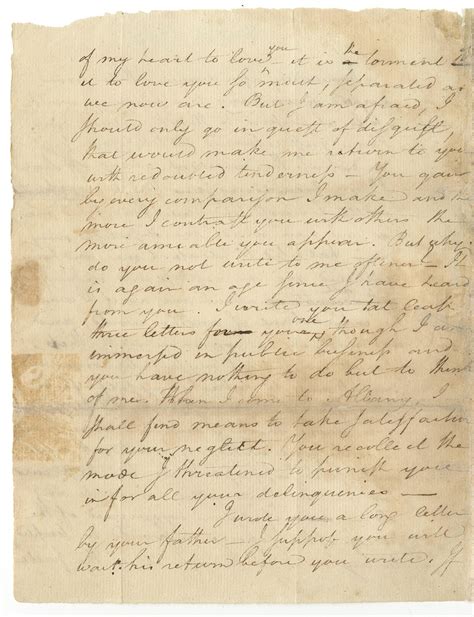 of my heart to love you – it is the torment
it to love you so much, separated as
we now are. But I am afraid, I
should only go in quest of disquiet,
that would make me return to you
with redoubled tenderness – You gain
by every comparison I make and the
more I contrast you with others the
more amiable you appear. But why
do you not write to me oftener – It
is again an age since I have heard
from you. I write you at least
three letters for your one, though I am
immersed in public business and
you have nothing to do but to think
of me. When I come to Albany, I
shall find means to take satisfaction
for your neglect. You recollect the
mode I threatened to punish you
in for all your delinquencies –
I wrote you a long letter
by your father – I suppose you will
wait his return before you write. If